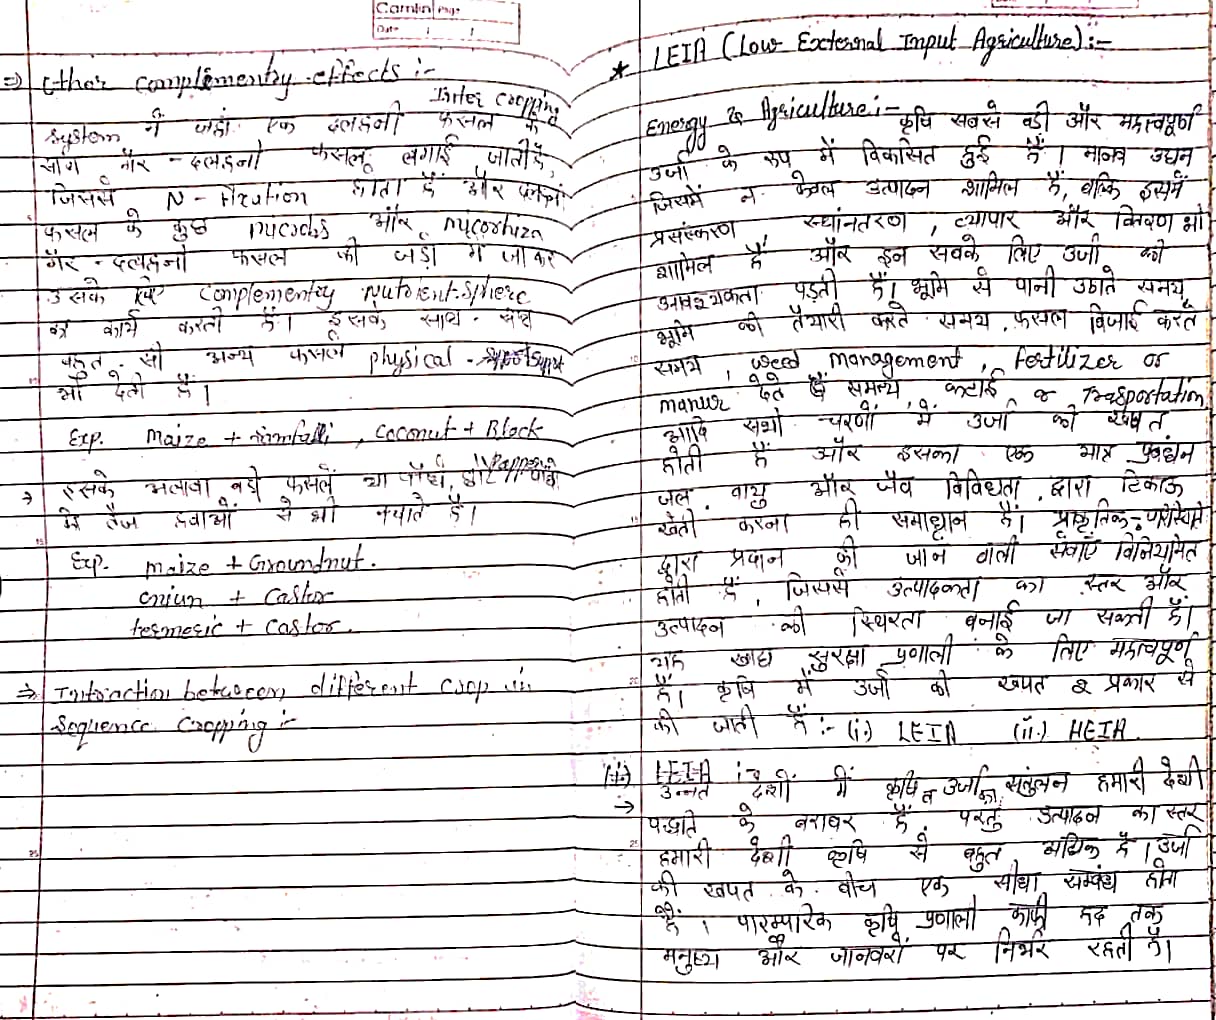 Camlin Page
Date / /
⇒ Other complementry effects :-
Inter cropping
system में जहां एक दलहनी फसल के
साथ गैर - दलहनी फसल लगाई जाती है,
जिससे N - Fixation होता है और
फसल के कुछ और mycorhiza
गैर - दलहनी फसल की जड़ो में जाकर
उसके लिए complementry Nutrient-Sphere
का कार्य करती है। इसके साथ - साथ
बहुत - सी अन्य फसलें physical - support
भी देती हैं।
Exp. maize + , coconut + Black
Papper
→ इसके अलावा बड़ी फसलें या पौधें, छोटे
तेज हवाओं से भी बचाते है।
Exp. maize + Groundnut.
oniun + Castor
termeric + Castor.
⇒ Intraction between different crop in
Sequence Cropping :-
* LEIA (Low External Input Agriculture) :-
Energy & Agriculture :- कृषि सबसे बड़ी और महत्वपूर्ण
उर्जा के रूप में विकासित हुई हैं। मानव उद्यम
जिसमें न केवल उत्पादन शामिल हैं, बल्कि इसमें
प्रसंस्करण, स्थांनतरण, व्यापार और वितरण भी
शामिल हैं और इन सबके लिए उर्जा की
आवश्यकता पड़ती हैं। भूमि से पानी उठाते समय,
भूमि की तैयारी करते समय, फसल बिजाई करते
समय, weed management, fertilizer or
manur देते समय, कटाई or Trasportation
आदि सभी चरणों में उर्जा की खपत
होती हैं और इसका एक मात्र प्रबंधन
जल, वायु और जैव विविधता द्वारा टिकाऊ
खेती करना ही समाधान हैं। प्राकृतिक
द्वारा प्रदान की जाने वाली सेवाएँ विनियमित
होती हैं, जिससे उत्पादकता का स्तर और
उत्पादन की स्थिरता बनाई जा सकती हैं।
यह खाद्य सुरक्षा प्रणाली के लिए महत्वपूर्ण
हैं। कृषि में उर्जा की खपत 2 प्रकार से
की जाती हैं :- (i.) LEIA (ii.) HEIA.
(ii) HEIA :-
→ उन्नत देशों में कृषि व उर्जा का संतुलन हमारी देशी
पद्धति के बराबर हैं, परंतु उत्पादन का स्तर
हमारी देशी कृषि से बहुत अधिक हैं। उर्जा
की खपत के बीच एक सीधा सम्बंध होता
हैं। पारम्पारिक कृषि प्रणाली काफी हद तक
मनुष्य और जानवरों पर निर्भर रहती हैं।